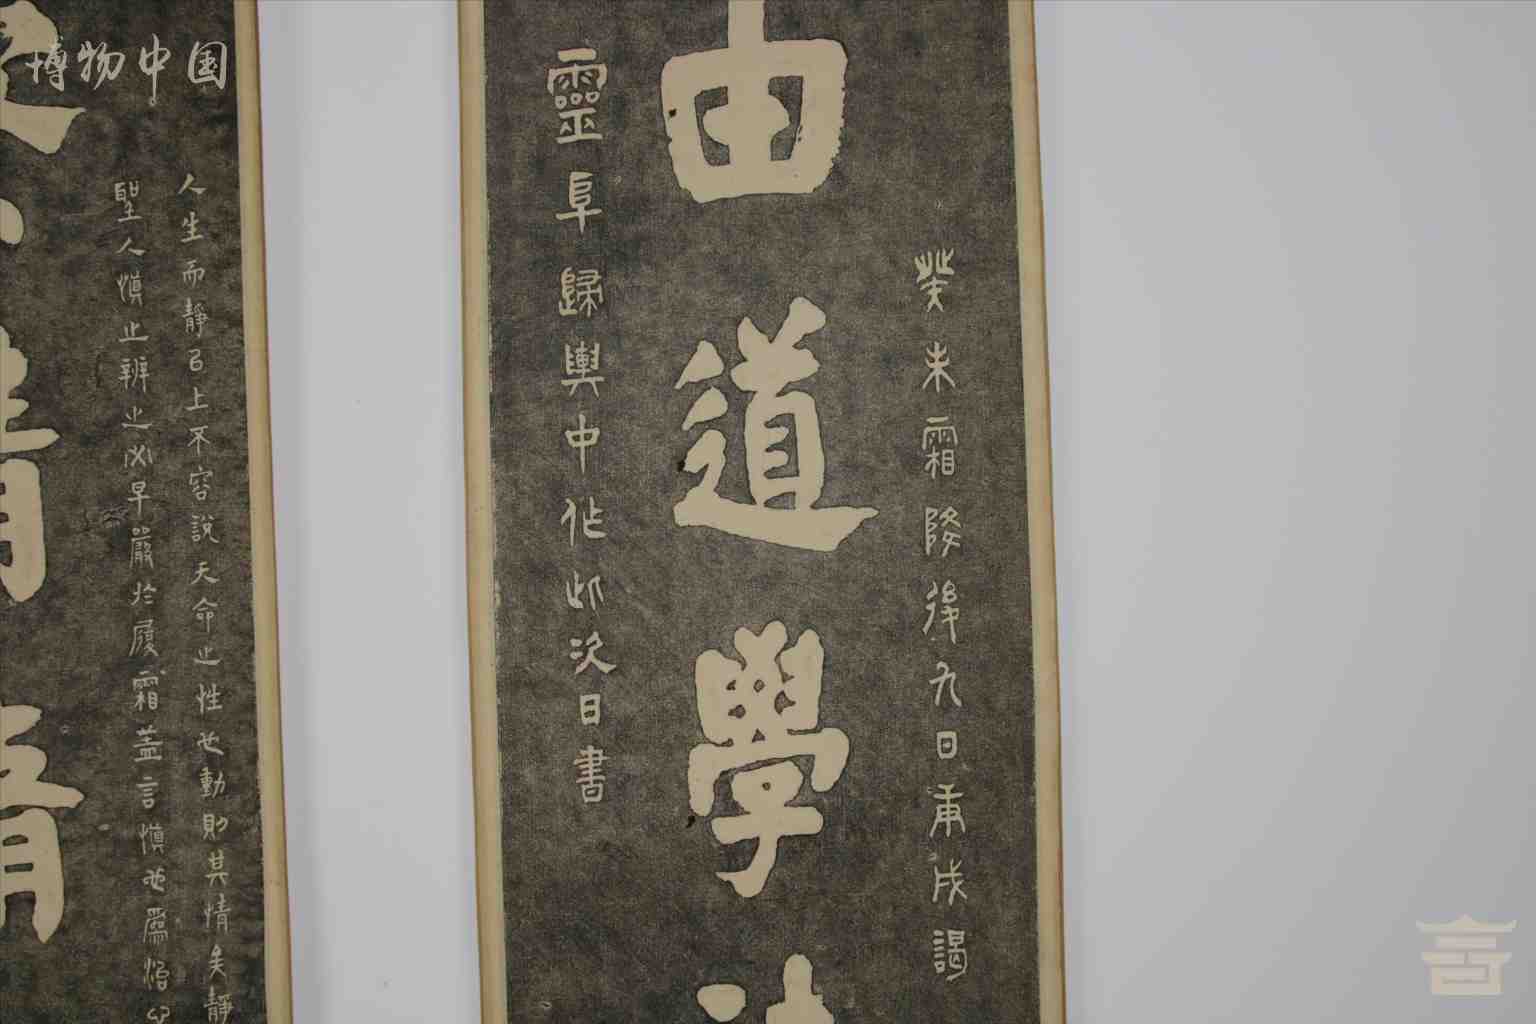 博物中国
癸未霜降後九日甫成謁
由道學
靈阜歸輿中作此次日書
人生而靜㠯上不容說天命之性也動則其情矣靜
聖人慎止辨之必早嚴於履霜蓋言慎也爲